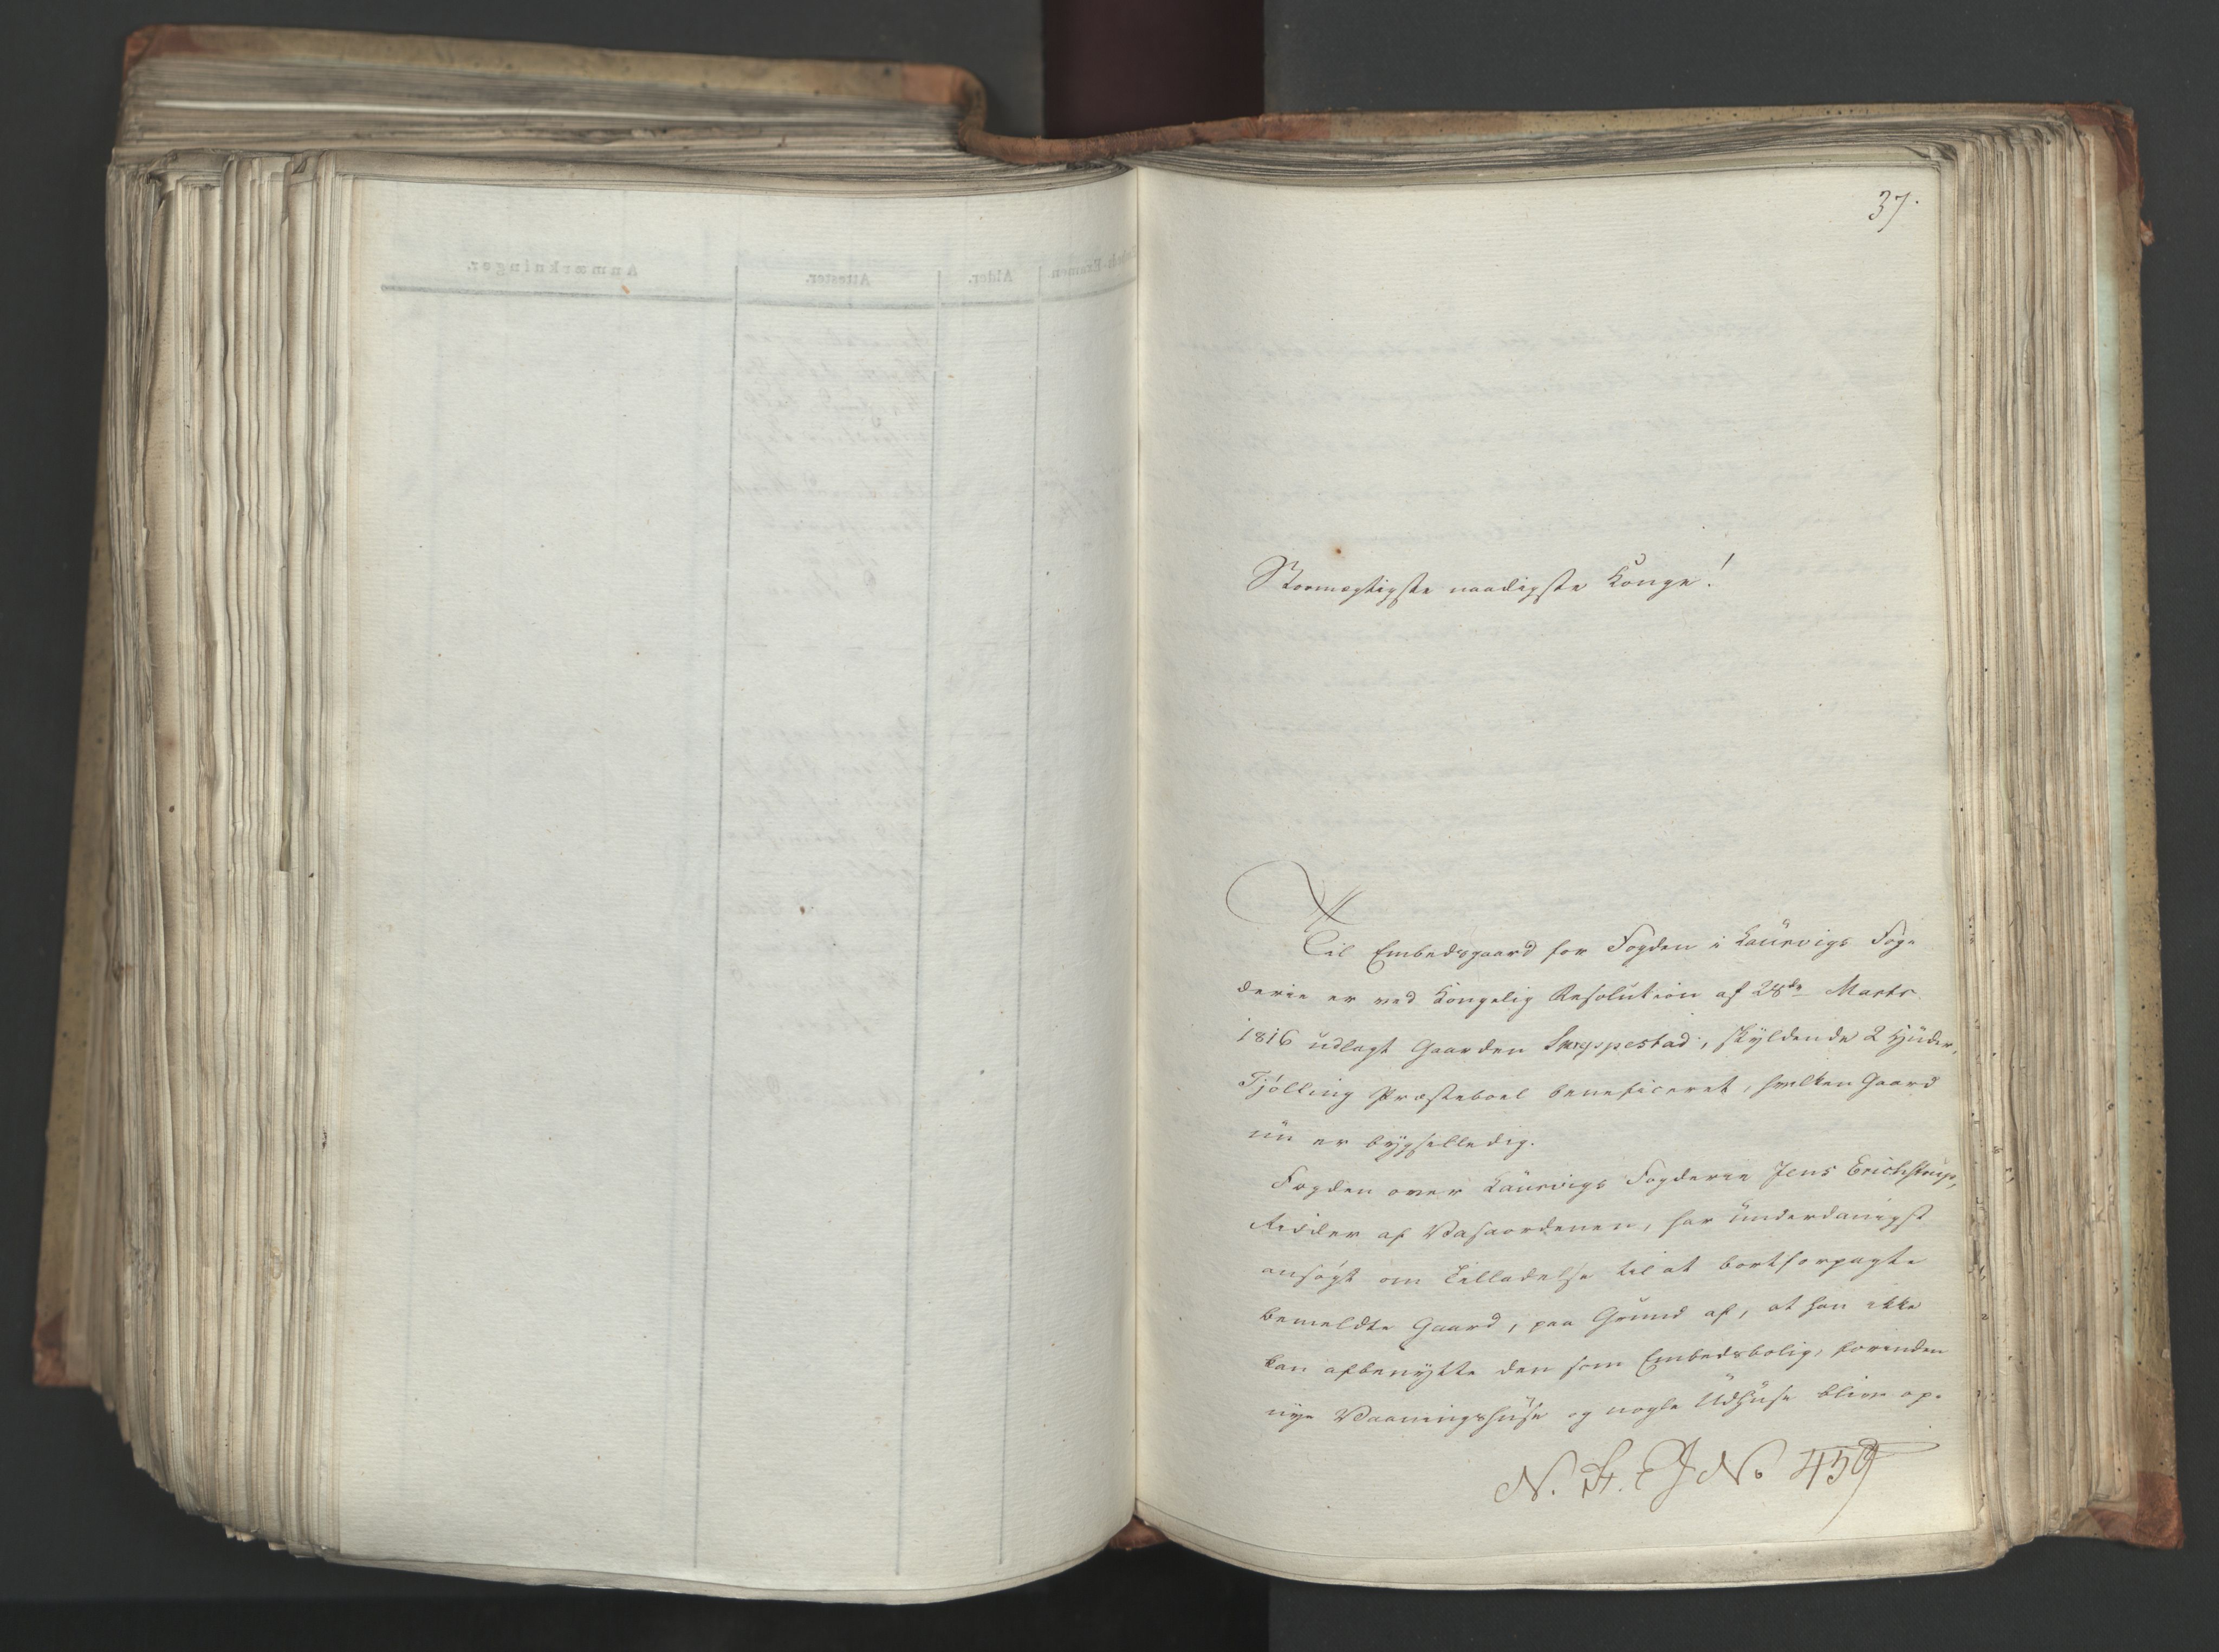 37.
Stormægtigste naadigste Konge!
Til Embedsgaard for Fogden i Laurvigs Fog-
derie er ved Kongelig Resolution af 28de Marts
1816 udlagt Gaarden Skreppestad, skyldende 2 Huder,
Tjølling Præsteboel beneficeret, hvilken Gaard
nu er bygselledig.
Fogden over Laurvigs Fogderie Jens Erichstrup,
Ridder af Vasaordenen, har underdanigst
ansøgt om Tilladelse til at bortforpagte
bemeldte Gaard, paa Grund af, at han ikke
kan afbenytte den som Embedsbolig, forinden
nye Vaaningshuse og nogle Udhuse blive op-
No 459
Anmærkninger.
Attester.
Alder.
Examen